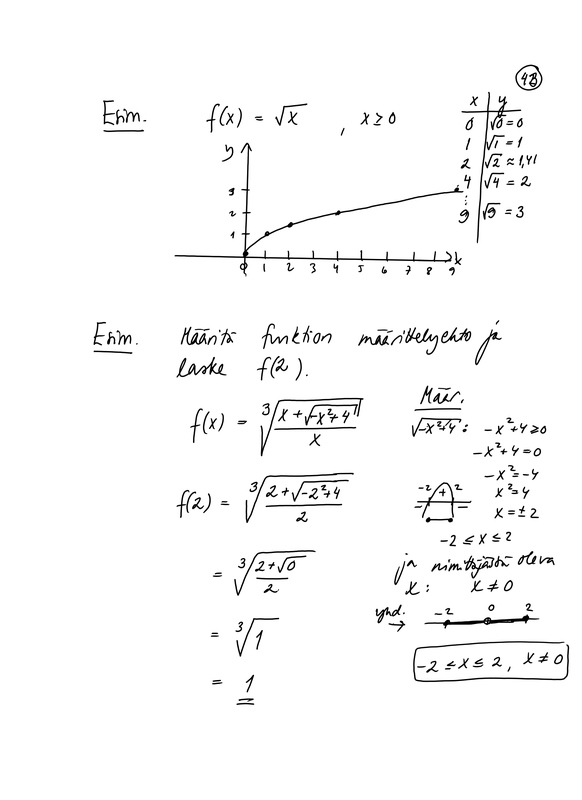 4B
Esim. f(x) = √x , x ≥ 0
x | y
0 | √0 = 0
1 | √1 = 1
2 | √2 ≈ 1,41
4 | √4 = 2
⋮
9 | √9 = 3
y
3
2
1
0 1 2 3 4 5 6 7 8 9 x
Esim. Määritä funktion määrittelyehto ja
laske f(2).
f(x) = ∛((x + √(-x²+4))/x)
f(2) = ∛((2 + √(-2²+4))/2)
= ∛((2 + √0)/2)
= ∛1
= 1
Määr.
√(-x²+4) : -x²+4 ≥ 0
-x²+4 = 0
-x² = -4
x² = 4
x = ±2
-2 + 2
- -
-2 ≤ x ≤ 2
ja nimittäjästä oleva
x: x ≠ 0
yhd. → -2 0 2
-2 ≤ x ≤ 2, x ≠ 0